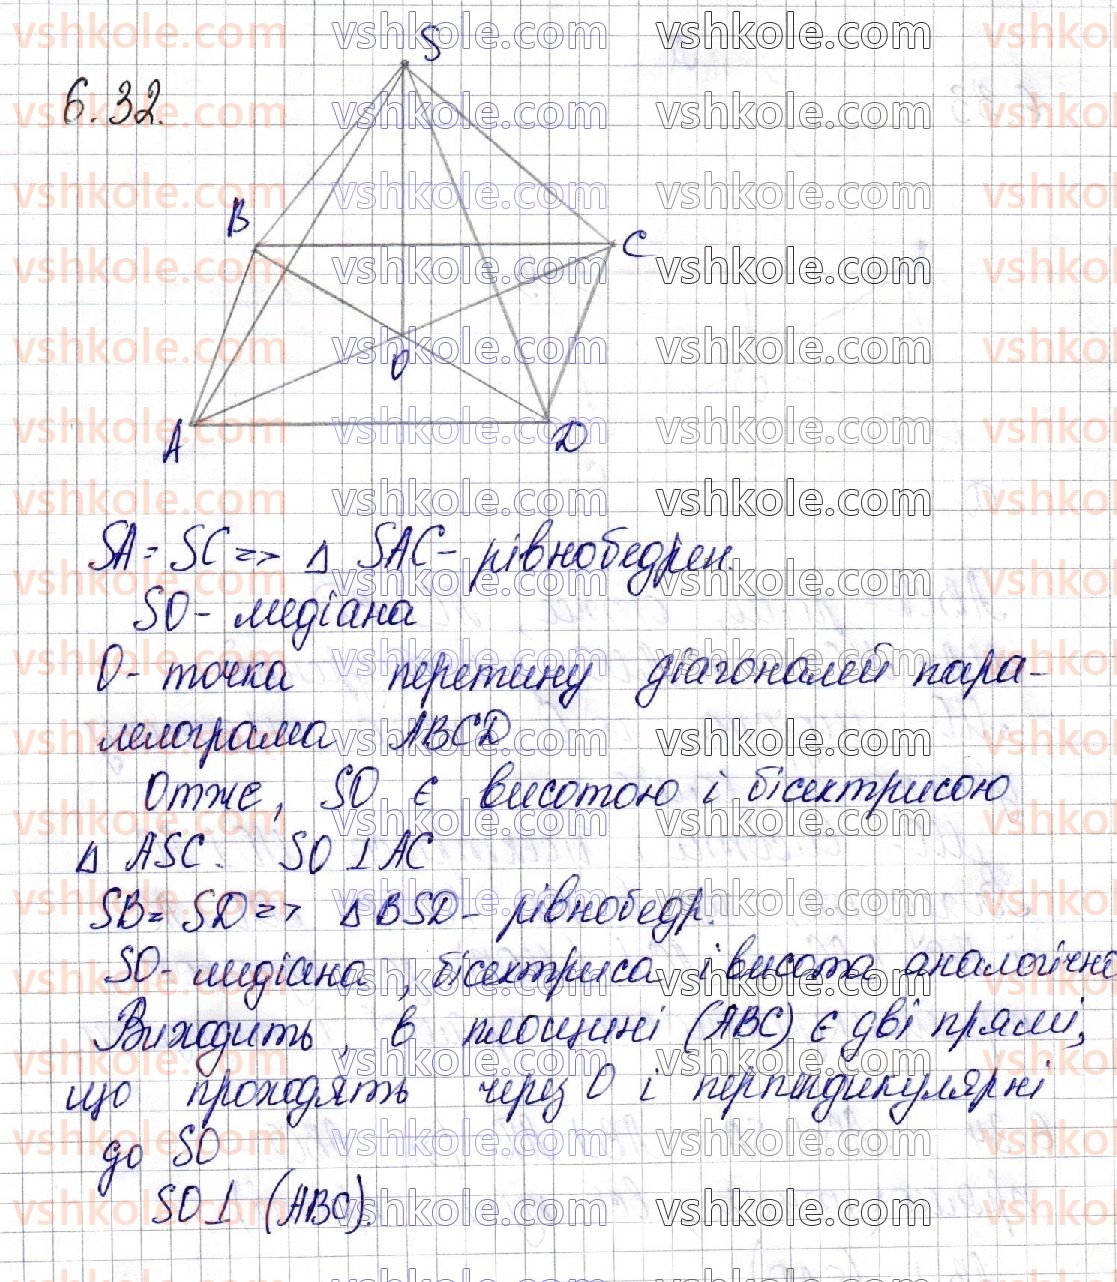 6.32.
S
B
C
O
A
D
SA = SC => Δ SAC - рівнобедрен.
SO - медіана
O - точка перетину діагоналей пара-
лелограма ABCD
Отже, SO є висотою і бісектрисою
Δ ASC. SO ⊥ AC
SB = SD => Δ BSD - рівнобедр.
SO - медіана, бісектриса і висота аналогічно
Виходить, в площині (ABC) є дві прямі,
що проходять через O і перпендикулярні
до SO
SO ⊥ (ABC).
vshkole.com